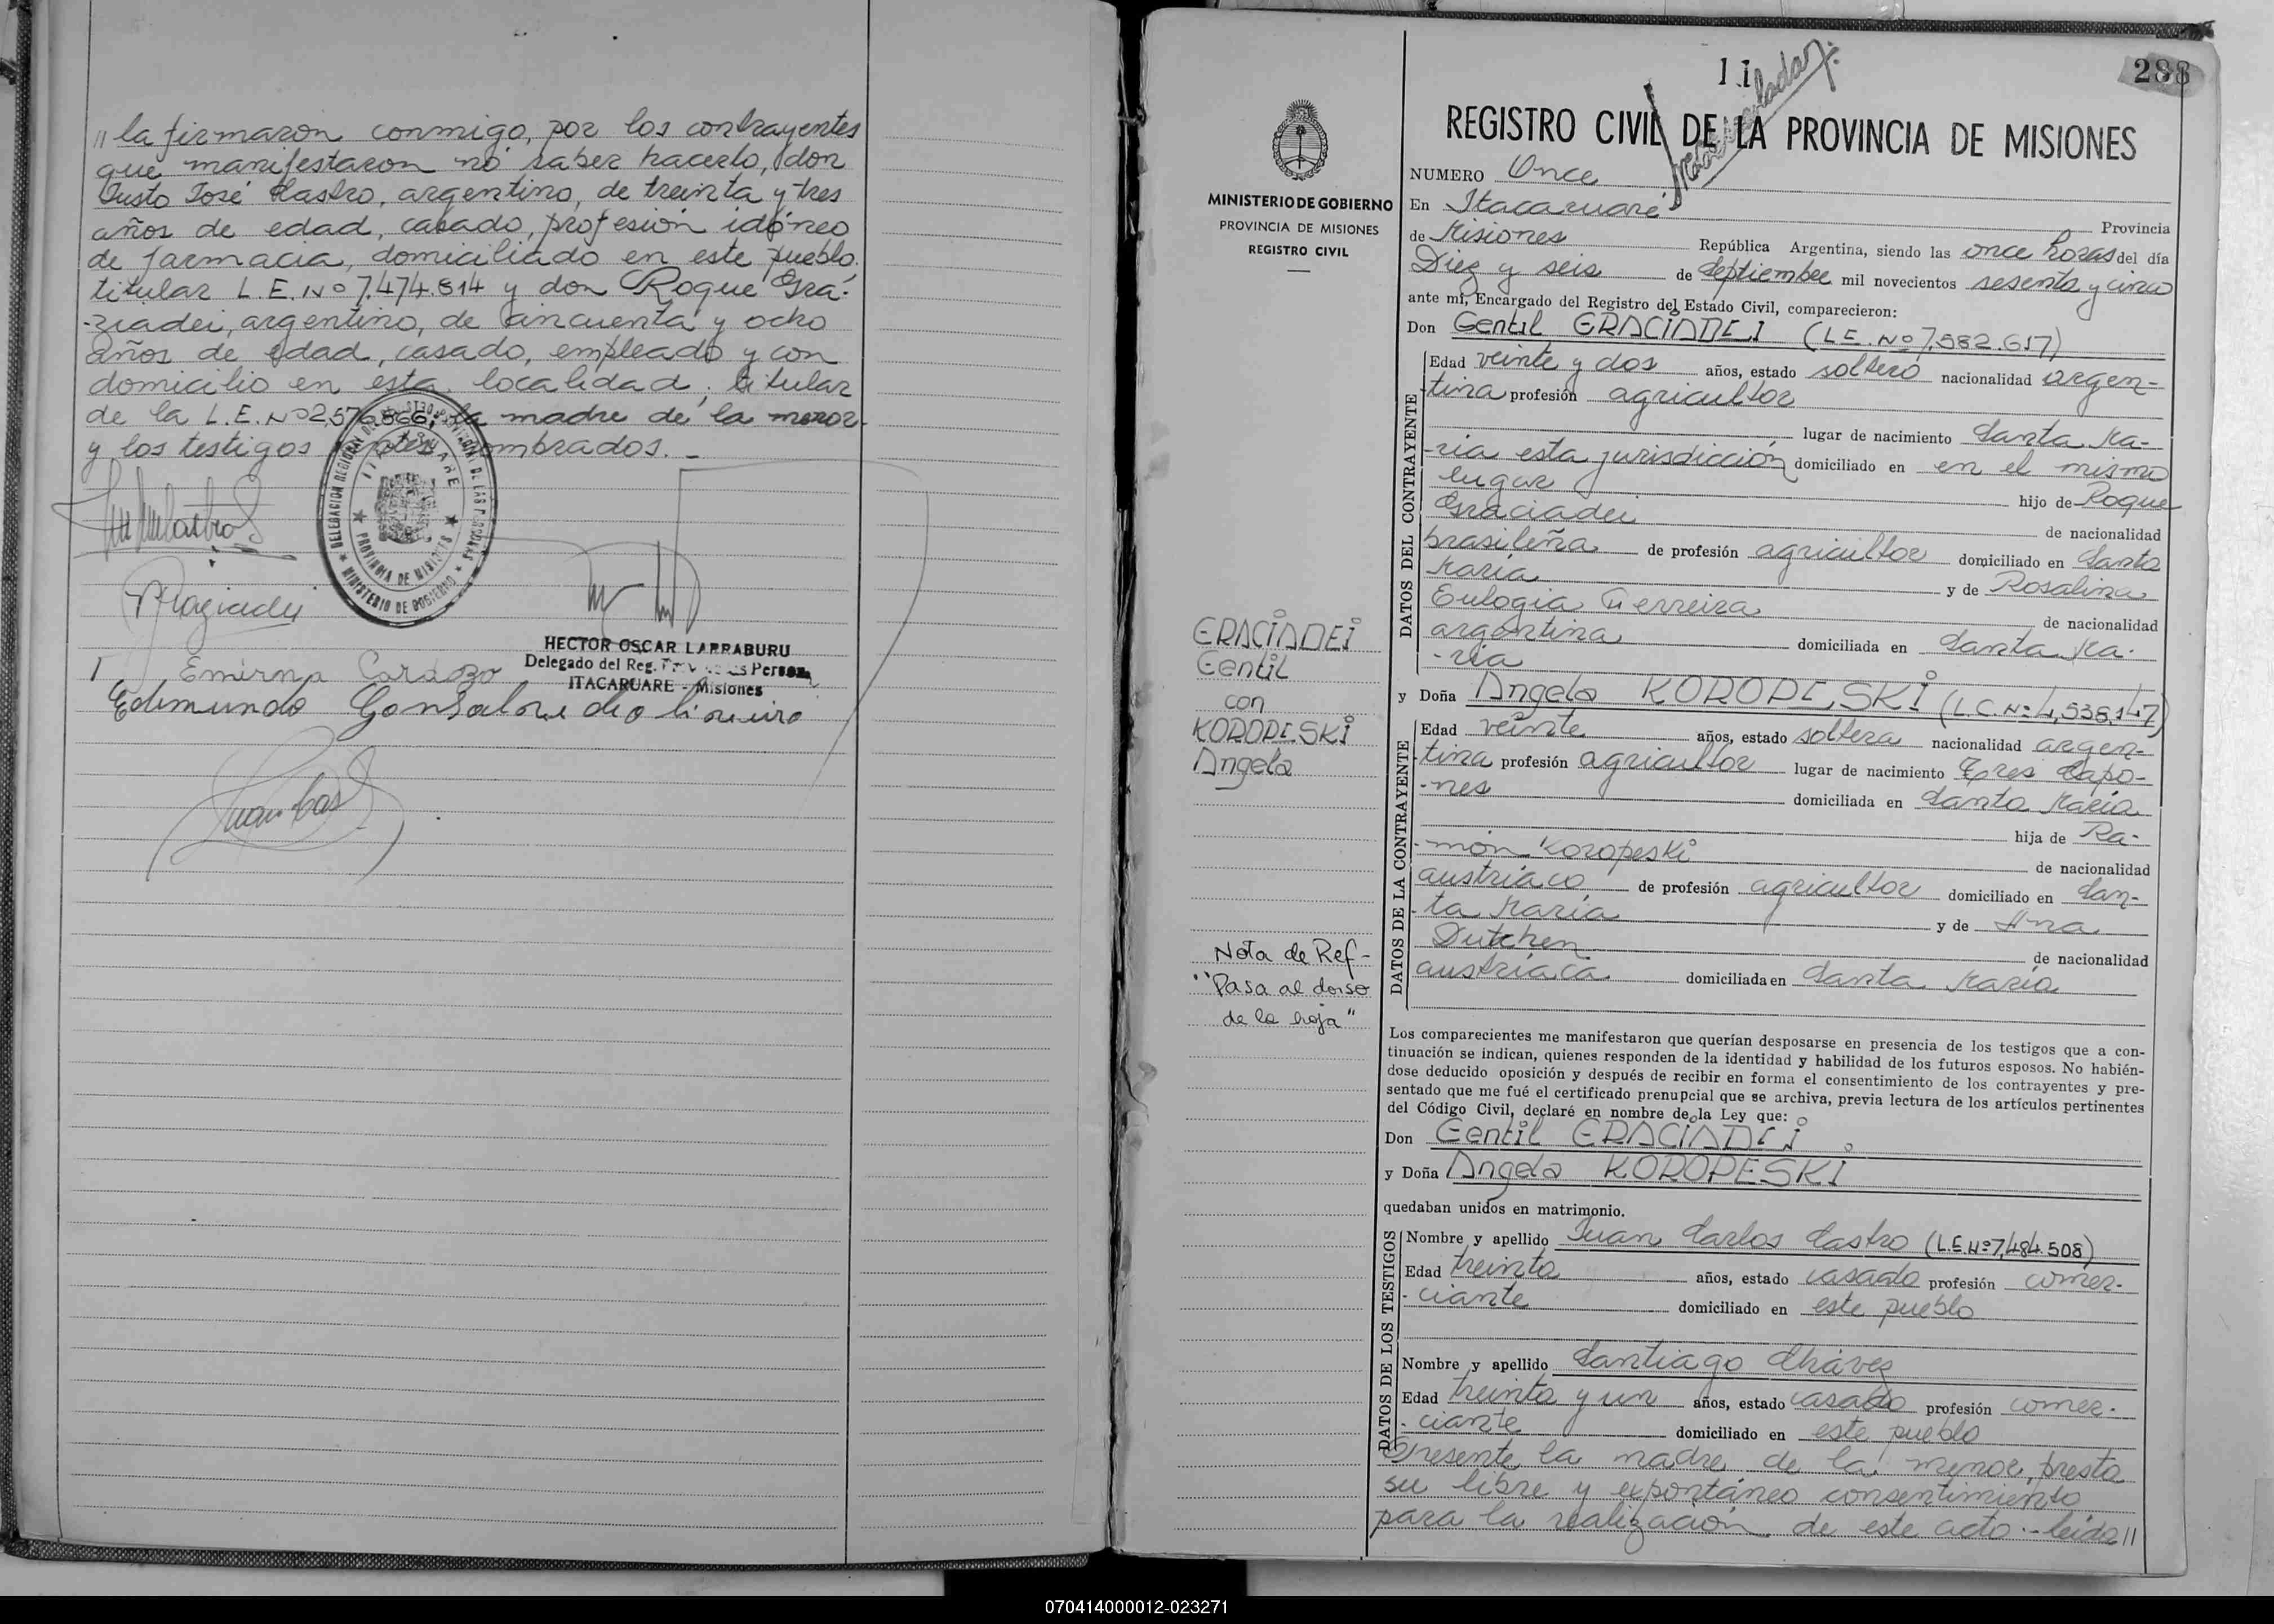 // la firmaron conmigo, por los contrayentes
que manifestaron no saber hacerlo, don
Justo José Castro, argentino, de treinta y tres
años de edad, casado, profesión idóneo
de farmacia, domiciliado en este pueblo,
titular L.E. Nº 7.474.814 y don Roque Gra-
-ziadei, argentino, de cincuenta y ocho
años de edad, casado, empleado y con
domicilio en esta localidad, titular
de la L.E. Nº 2.576.866; la madre de la menor
y los testigos antes nombrados. -
ITACARUARE
PROVINCIA DE MISIONES
MINISTERIO DE GOBIERNO
HECTOR OSCAR LARRABURU
Delegado del Reg. Person.
ITACARUARE - Misiones
Emirna Cardozo
Edmundo
Juan Cas
288
11
REGISTRO CIVIL DE LA PROVINCIA DE MISIONES
MINISTERIO DE GOBIERNO
PROVINCIA DE MISIONES
REGISTRO CIVIL
NUMERO Once
En Itacaruaré Provincia
de Misiones República Argentina, siendo las once horas del día
Diez y seis de Septiembre mil novecientos sesenta y cinco
ante mí, Encargado del Registro del Estado Civil, comparecieron:
Don Gentil GRACIADEI (L.E. Nº 7.582.617)
DATOS DEL CONTRAYENTE
Edad veinte y dos años, estado soltero nacionalidad argen-
-tina profesión agricultor
lugar de nacimiento Santa Ma-
-ria esta jurisdicción domiciliado en en el mismo
lugar hijo de Roque
Graciadei de nacionalidad
brasileña de profesión agricultor domiciliado en Santa
Maria y de Rosalina
Eulogia Ferreira de nacionalidad
argentina domiciliada en Santa Ma-
-ria
y Doña Angela KOROPESKI (L.C. Nº 4,538,147)
DATOS DE LA CONTRAYENTE
Edad veinte años, estado soltera nacionalidad argen-
-tina profesión agricultor lugar de nacimiento Tres Capo-
-nes domiciliada en Santa Maria
hija de Ra-
-món Koropeski de nacionalidad
austríaco de profesión agricultor domiciliado en San-
-ta Maria y de Ana
Dutchen de nacionalidad
austríaca domiciliada en Santa Maria
GRACIADEI
Gentil
con
KOROPESKI
Angela
Nota de Ref-
"Pasa al dorso
de la hoja"
Los comparecientes me manifestaron que querían desposarse en presencia de los testigos que a con-
tinuación se indican, quienes responden de la identidad y habilidad de los futuros esposos. No habién-
dose deducido oposición y después de recibir en forma el consentimiento de los contrayentes y pre-
sentado que me fué el certificado prenupcial que se archiva, previa lectura de los artículos pertinentes
del Código Civil, declaré en nombre de la Ley que:
Don Gentil GRACIADEI
y Doña Angela KOROPESKI
quedaban unidos en matrimonio.
DATOS DE LOS TESTIGOS
Nombre y apellido Juan Carlos Castro (L.E. Nº 7,484.508)
Edad treinta años, estado casado profesión comer-
-ciante domiciliado en este pueblo
Nombre y apellido Santiago Chávez
Edad treinta y un años, estado casado profesión comer-
-ciante domiciliado en este pueblo
Presente la madre de la menor, presta
su libre y expontáneo consentimiento
para la realización de este acto.- leída //
070414000012-023271